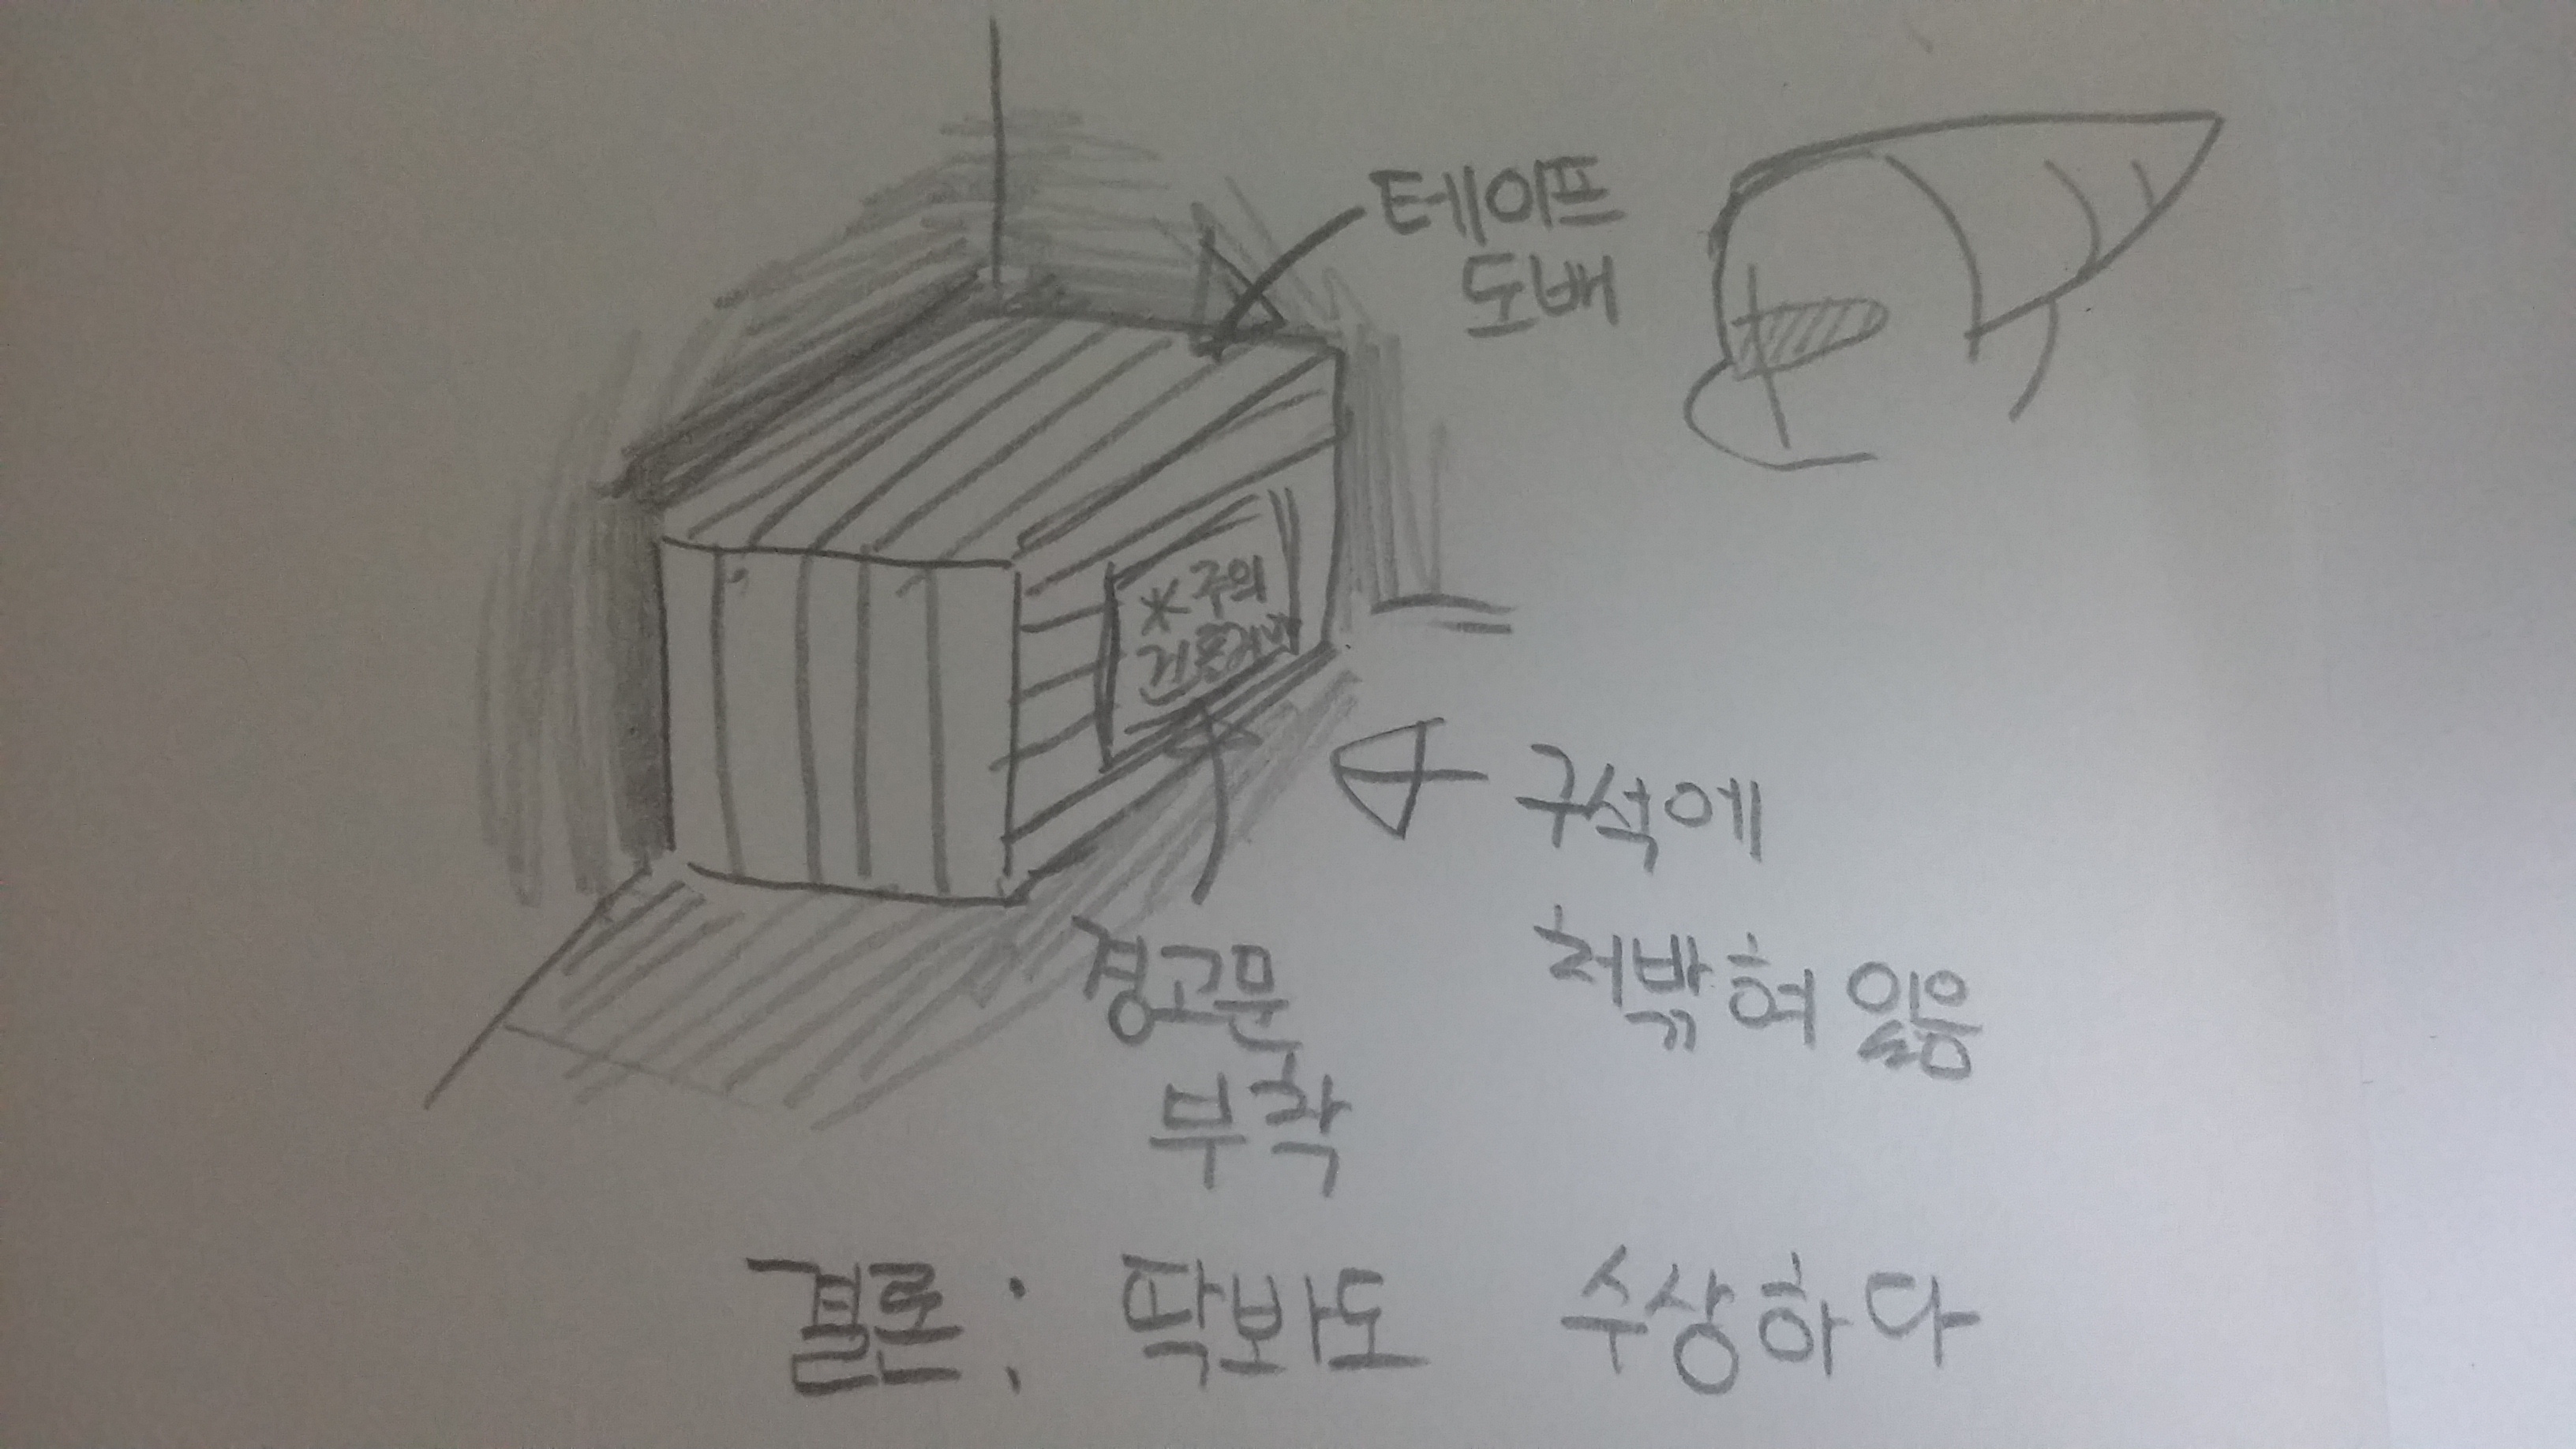 테이프
도배
* 주의
구석에
쳐밖혀 있음
경고문
부착
결론; 딱봐도 수상하다